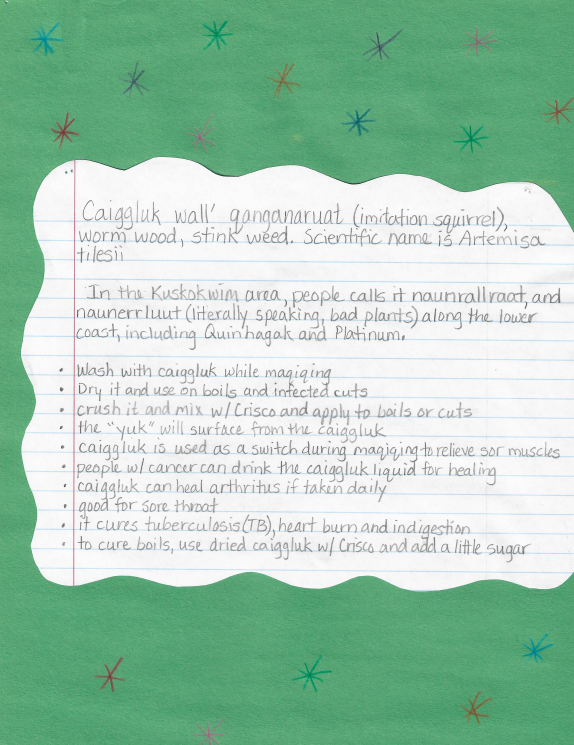 Caiggluk wall' qanganaruat (imitation squirrel),
worm wood, stink weed. Scientific name is Artemisa
tilesii
In the Kuskokwim area, people calls it naunrallraat, and
naunerrluut (literally speaking, bad plants) along the lower
coast, including Quinhagak and Platinum.
• Wash with caiggluk while maqiqing
• Dry it and use on boils and infected cuts
• crush it and mix w/ Crisco and apply to boils or cuts
• the "yuk" will surface from the caiggluk
• caiggluk is used as a switch during maqiqing to relieve sor muscles
• people w/ cancer can drink the caiggluk liquid for healing
• caiggluk can heal arthritus if taken daily
• good for sore throat
• it cures tuberculosis (TB), heart burn and indigestion
• to cure boils, use dried caiggluk w/ Crisco and add a little sugar